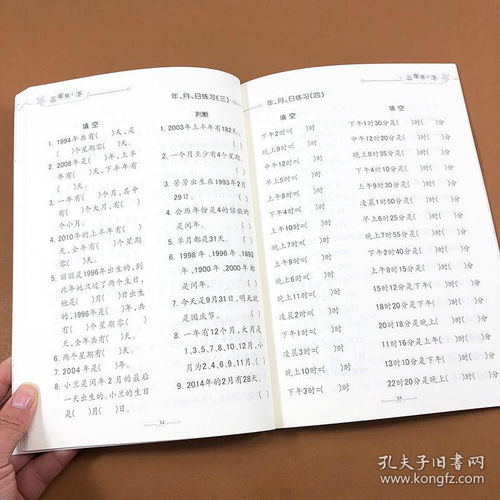 三年级·下
年、月、日练习(三)
填空
1. 1994年共有( )天,是
( )个星期零( )天。
2. 2008年是( )年,上半
年有( )天,下半年有
( )天。
3. 一年有( )个月,其中
有( )个大月,有( )
个小月。
4. 2010年的上半年有( )
天,全年有( )个星期
零( )天。
5. 丽丽是1996年出生的,到
此年她只过了两个生日,
她是( )月( )日出生
的,1996年是( )年,共
有( )个星期零( )
天,全年有( )天。
6. 两个星期有( )天。
7. 2004年是( )年。
8. 小兰是闰年2月的最后
一天出生的。小兰的生日
是( )月( )日。
判断
1. 2003年上半年有182天。
( )
2. 一个月至少有4个星期。
( )
3. 芳芳出生在1993年2月
29日。 ( )
4. 公历年份是4的倍数的
是闰年。 ( )
5. 单月都是31天。 ( )
6. 1998年、1996年、1892
年、1900年、2000年都
是闰年。 ( )
7. 今天是9月31日,明天就
是国庆节。 ( )
8. 一年有12个月,大月是
1,3,5,7,8,10,12月,小
月为2,4,6,9,11月。( )
9. 2014年的2月有28天。
( )
34
三年级·下
年、月、日练习(四)
填空
下午2时=( )时
晚上9时=( )时
中午12时=( )时
早上5时=( )时
上午8时=( )时
下午4时=( )时
凌晨1时=( )时
上午10时=( )时
晚上7时=( )时
上午9时=( )时
晚上6时=( )时
中午11时=( )时
下午1时=( )时
凌晨3时=( )时
晚上10时=( )时
下午3时=( )时
填空
下午1时30分是( )时( )分
中午12时20分是( )时( )分
晚上8时35分是( )时( )分
上午4时10分是( )时( )分
上午9时30分是( )时( )分
凌晨1时50分是( )时( )分
早上6时25分是( )时( )分
晚上7时55分是( )时( )分
下午2时40分是( )时( )分
上午8时15分是( )时( )分
18时20分是下午( )时( )分
20时18分是晚上( )时( )分
11时16分是上午( )时( )分
13时10分是下午( )时( )分
22时20分是晚上( )时( )分
35
孔夫子旧书网
www.kongfz.com